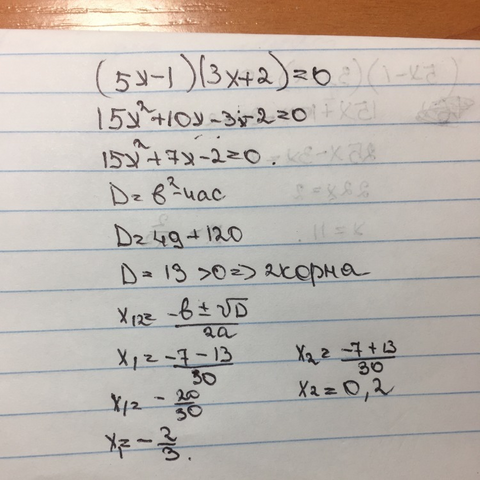 (5x-1)(3x+2)=0
15x²+10x-3x-2=0
15x²+7x-2=0.
D=b²-4ac
D=49+120
D=13>0=>2корна
x₁,₂=(-b±√D)/2a
x₁=(-7-13)/30 x₂=(-7+13)/30
x₁=-20/30 x₂=0,2
x₁=-2/3.